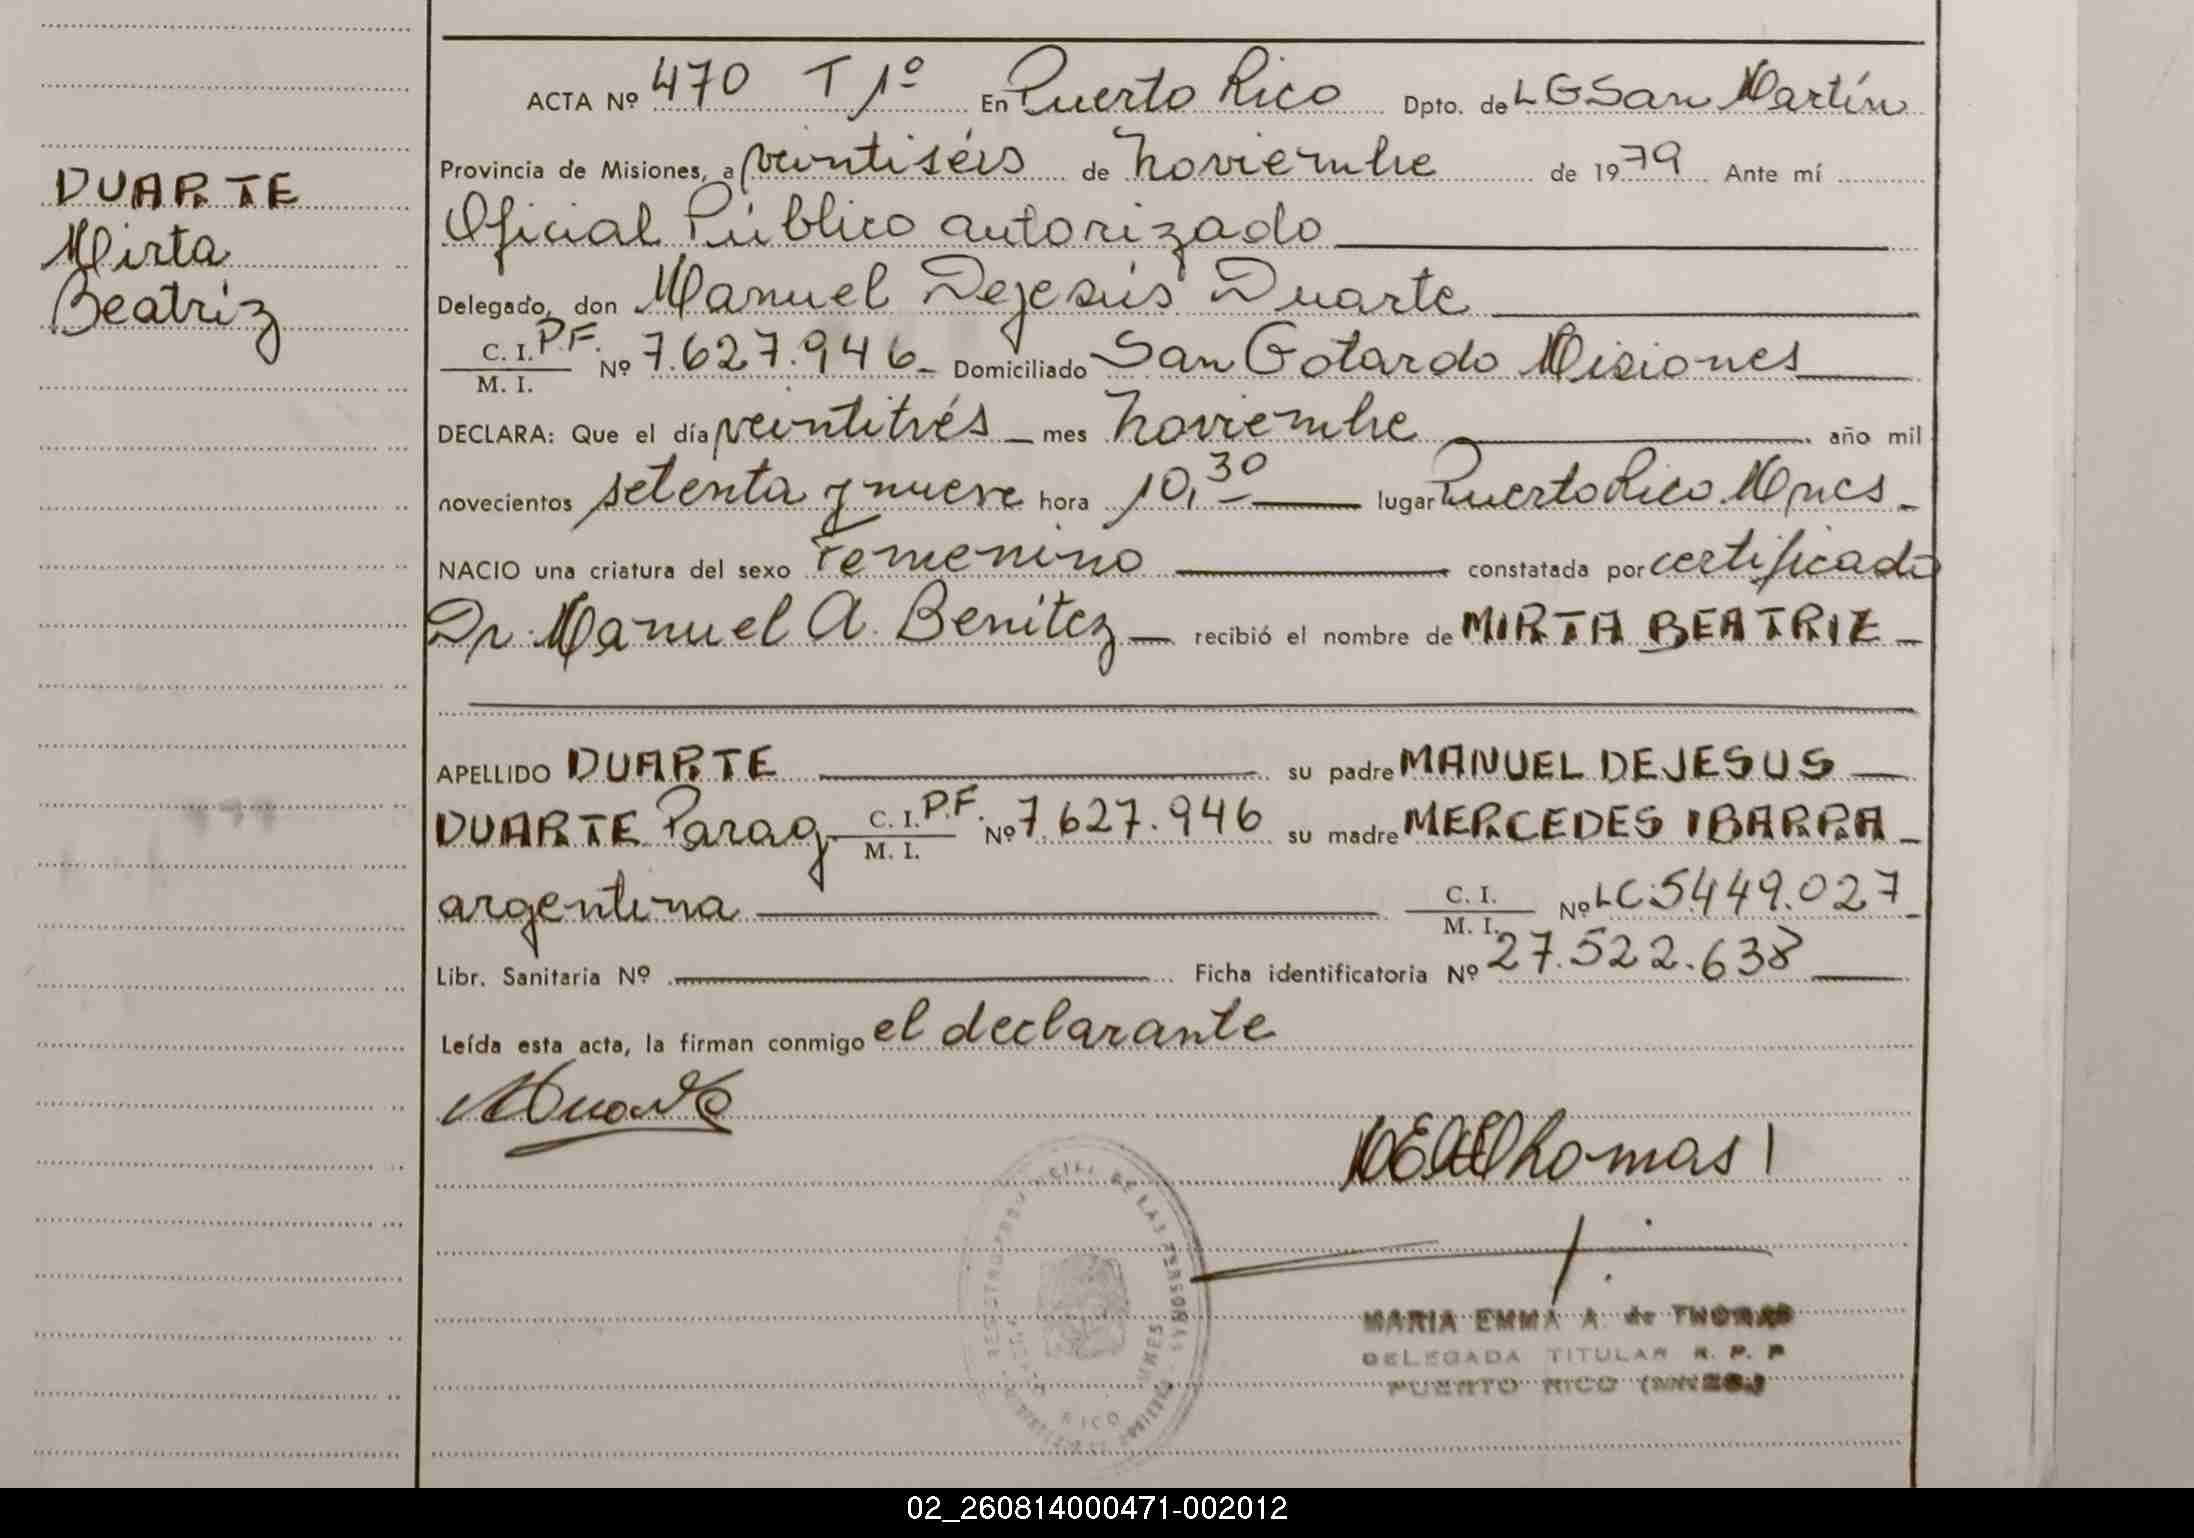 ACTA Nº 470 T 1º En Puerto Rico Dpto. de LGSan Martín
Provincia de Misiones, a veintiséis de noviembre de 1979 Ante mí
DUARTE
Mirta
Beatriz
Oficial Público autorizado
Delegado, don Manuel Dejesús Duarte
C. I. P.F. Nº 7.627.946 Domiciliado San Gotardo Misiones
M. I.
DECLARA: Que el día veintitrés mes noviembre año mil
novecientos setenta y nueve hora 10,30 lugar Puerto Rico. Mnes
NACIO una criatura del sexo Femenino constatada por certificado
Dr. Manuel A. Benítez recibió el nombre de MIRTA BEATRIZ
APELLIDO DUARTE su padre MANUEL DEJESUS
DUARTE Parag C. I. P.F. Nº 7.627.946 su madre MERCEDES IBARRA
M. I.
argentina C. I. Nº LC.5449.027
M. I.
Libr. Sanitaria Nº Ficha identificatoria Nº 27.522.638
Leída esta acta, la firman conmigo el declarante
Thomas
REGISTRO PROVINCIAL DE LAS PERSONAS
RICO
MNES
MARIA EMMA A. de THOMAS
DELEGADA TITULAR R. P. P
PUERTO RICO (MNES.)
02_260814000471-002012